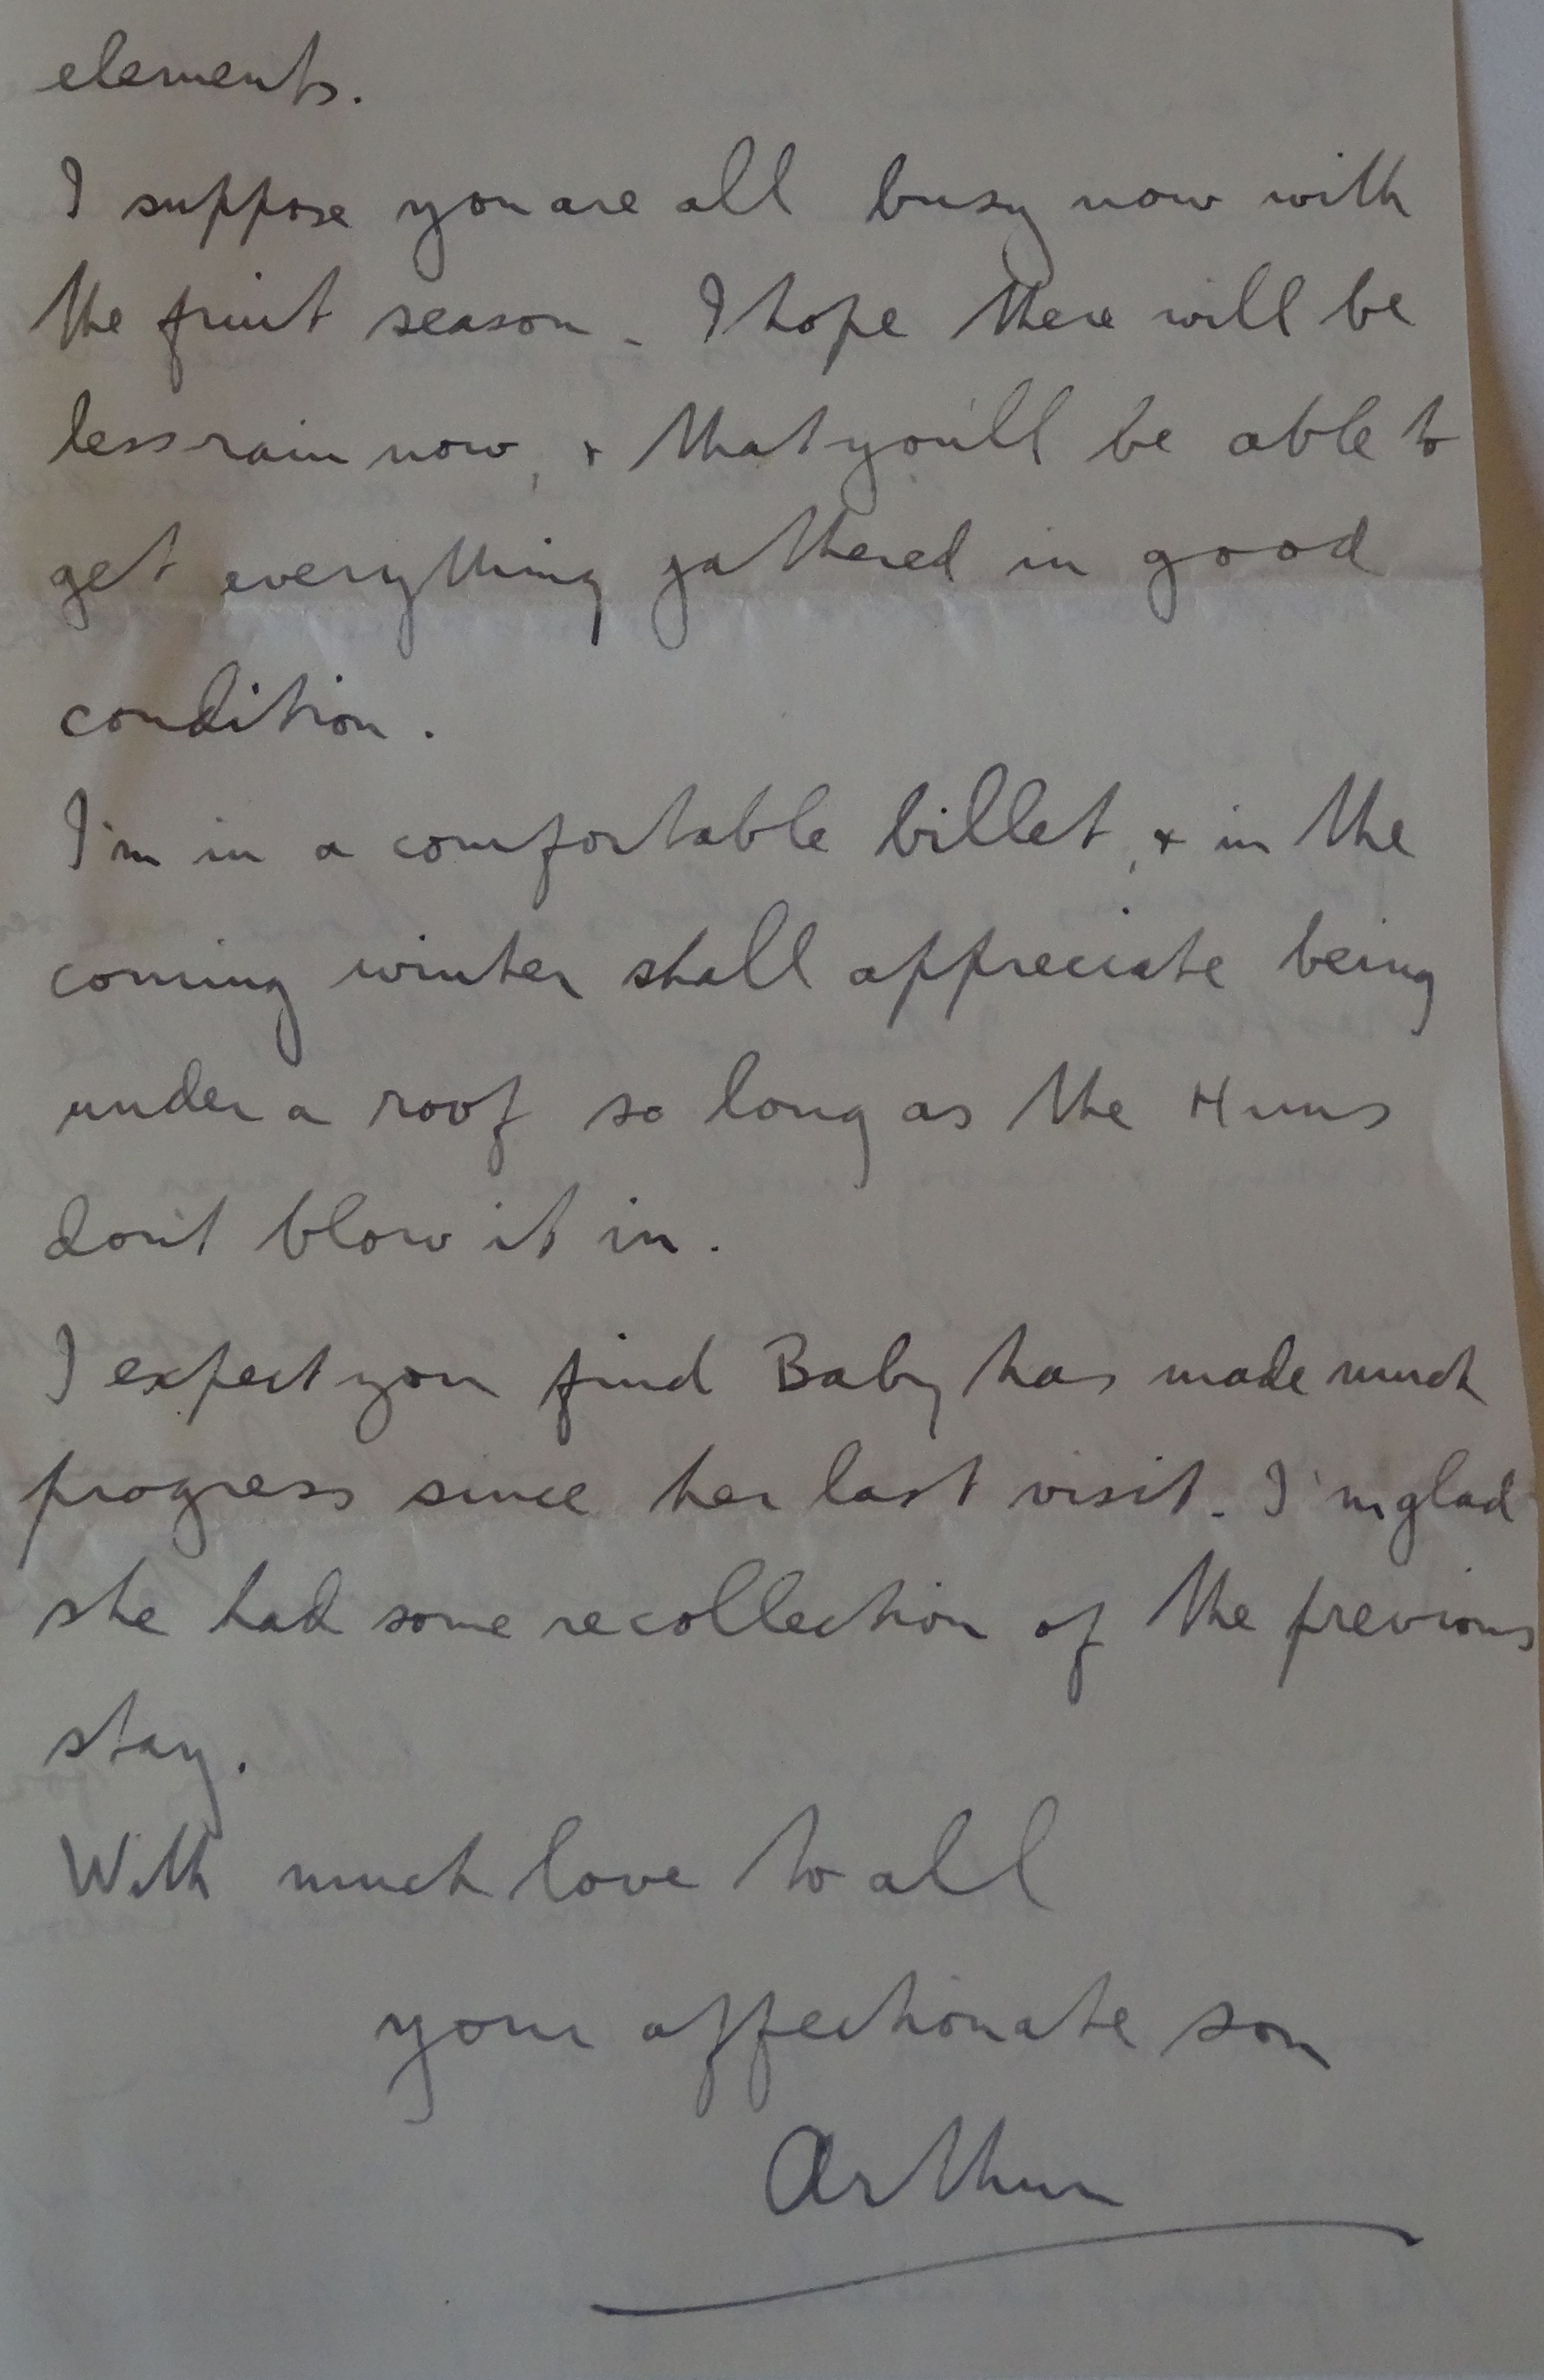 elements.
I suppose you are all busy now with
the fruit season - I hope there will be
less rain now, + that you'll be able to
get everything gathered in good
condition.
I'm in a comfortable billet, + in the
coming winter shall appreciate being
under a roof so long as the Huns
don't blow it in.
I expect you find Baby has made much
progress since her last visit. I'm glad
she had some recollection of the previous
stay.
With much love to all
your affectionate son
Arthur